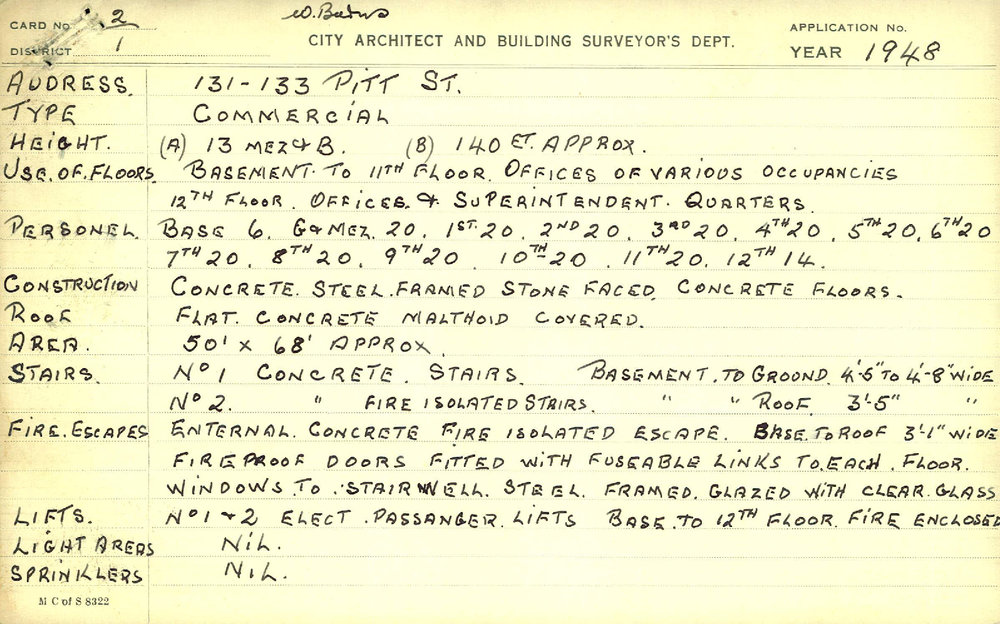 CARD No. 2
W. Bates
DISTRICT 1
CITY ARCHITECT AND BUILDING SURVEYOR'S DEPT.
APPLICATION No.
YEAR 1948
ADDRESS. 131-133 PITT ST.
TYPE COMMERCIAL
HEIGHT. (A) 13 MEZ & B. (B) 140 FT. APPROX.
USE. OF. FLOORS. BASEMENT. TO 11TH FLOOR. OFFICES OF VARIOUS OCCUPANCIES
12TH FLOOR. OFFICES. & SUPERINTENDENT. QUARTERS.
PERSONEL. BASE 6. G&MEZ. 20. 1ST. 20. 2ND 20. 3RD 20. 4TH 20. 5TH 20. 6TH 20
7TH 20. 8TH 20. 9TH 20. 10TH 20. 11TH 20. 12TH 14.
CONSTRUCTION CONCRETE. STEEL. FRAMED STONE FACED. CONCRETE FLOORS.
ROOF FLAT. CONCRETE MALTHOID COVERED.
AREA. 50' x 68' APPROX.
STAIRS. No 1 CONCRETE. STAIRS. BASEMENT. TO GROUND. 4'-5" TO 4'-8" WIDE
No 2. " FIRE ISOLATED STAIRS. " " ROOF. 3'-5" "
FIRE. ESCAPES ENTERNAL. CONCRETE FIRE ISOLATED ESCAPE. BASE. TO ROOF 3'-1" WIDE
FIREPROOF DOORS FITTED WITH FUSEABLE LINKS TO. EACH. FLOOR.
WINDOWS. TO. STAIRWELL. STEEL. FRAMED. GLAZED WITH CLEAR. GLASS
LIFTS. No 1 & 2 ELECT. PASSANGER. LIFTS BASE. TO 12TH FLOOR. FIRE ENCLOSED
LIGHT AREAS NIL.
SPRINKLERS NIL.
M C of S 8322